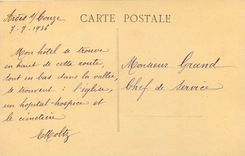 Ardes s/ Couze
CARTE POSTALE
7-9-1936
Mon hôtel se trouve
en haut de cette route,
tout en bas dans la vallée,
se trouvent : l'église,
un hopital-hospice et
le cimetière
Monsieur Grand
Chef de service